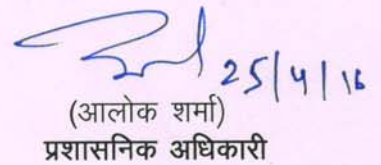 25/4/16
(आलोक शर्मा)
प्रशासनिक अधिकारी